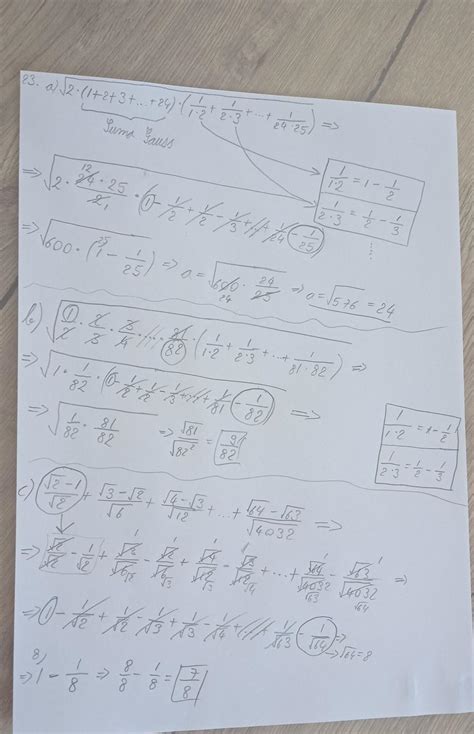 23. a) √(2·(1+2+3+...+24)·(1/(1·2) + 1/(2·3) + ... + 1/(24·25))) =>
Suma Gauss
1/(1·2) = 1 - 1/2
1/(2·3) = 1/2 - 1/3
=> √(2·(24·25)/2 · (1 - 1/2 + 1/2 - 1/3 + ... + 1/24 - 1/25))
=> √(600·(1 - 1/25)) => a = √(600 · 24/25) => a = √576 = 24
b) √(1/2 · 2/3 · 3/4 · ... · 81/82 · (1/(1·2) + 1/(2·3) + ... + 1/(81·82))) =>
=> √(1 · 1/82 · (1 - 1/2 + 1/2 - 1/3 + ... + 1/81 - 1/82)) =>
=> √(1/82 · 81/82) => √81/√82² = 9/82
1/(1·2) = 1 - 1/2
1/(2·3) = 1/2 - 1/3
c) (√2 - 1)/√2 + (√3 - √2)/√6 + (√4 - √3)/√12 + ... + (√64 - √63)/√4032 =>
=> √2/√2 - 1/√2 + √3/√6 - √2/√6 + √4/√12 - √3/√12 + ... + √64/√4032 - √63/√4032 =>
=> 1 - 1/√2 + 1/√2 - 1/√3 + 1/√3 - 1/√4 + ... + 1/√63 - 1/√64 =>
→ √64 = 8
=> 1 - 1/8 => 8/8 - 1/8 = 7/8